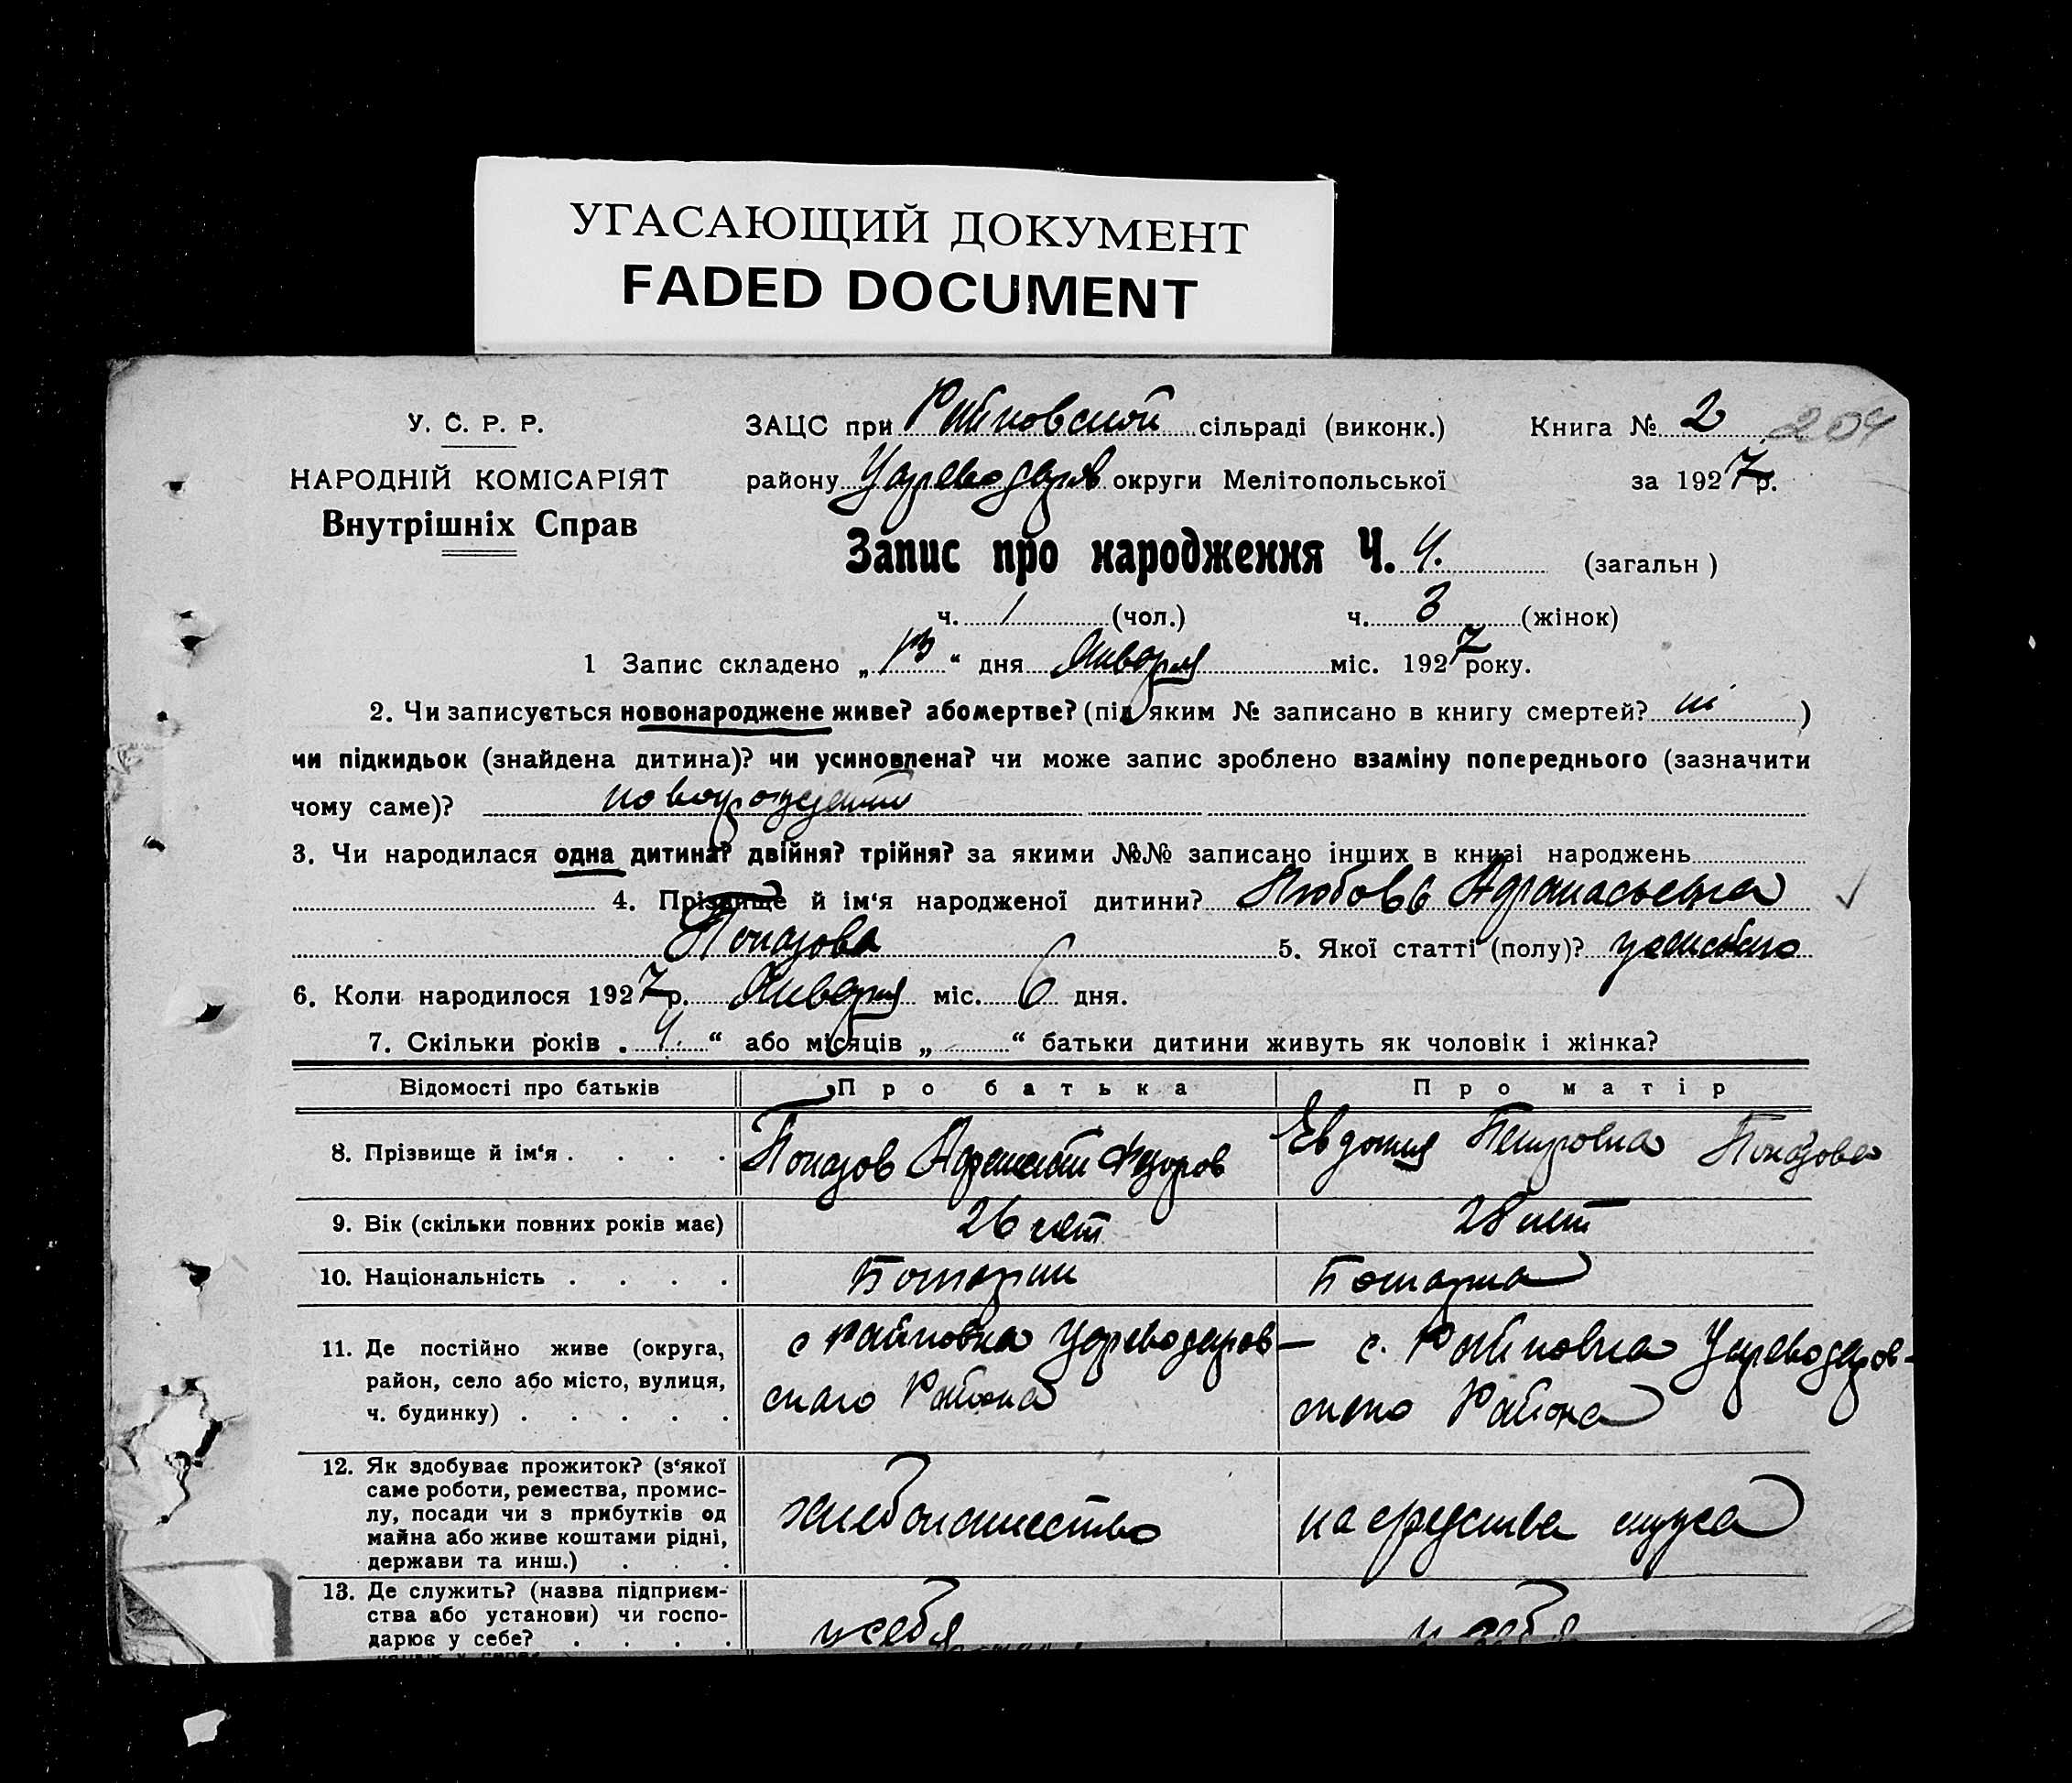 УГАСАЮЩИЙ ДОКУМЕНТ
FADED DOCUMENT
У. С. Р. Р.
НАРОДНІЙ КОМІСАРІЯТ
Внутрішніх Справ
ЗАЦС при Райновской сільраді (виконк.) Книга № 2 204
району Цареводаров округи Мелітопольської за 1927 р.
Запис про народження Ч. 4. (загальн)
ч. 1 (чол.) ч. 3 (жінок)
1 Запис складено „13“ дня Января міс. 1927 року.
2. Чи записується новонароджене живе? або мертве? (під яким № записано в книгу смертей? ні )
чи підкидьок (знайдена дитина)? чи усиновлена? чи може запис зроблено взаміну попереднього (зазначити
чому саме)? новорожденый
3. Чи народилася одна дитина? двійня? трійня? за якими №№ записано інших в книзі народжень
4. Прізвище й ім‘я народженої дитини? Любовь Афанасьевна
5. Якої статті (полу)? женского
6. Коли народилося 1927 р. Января міс. 6 дня.
7. Скільки років „ 4. “ або місяців „ “ батьки дитини живуть як чоловік і жінка?
Відомості про батьків Про батька Про матір
8. Прізвище й ім‘я . . . . Афанасий Федоров Евдокия Петровна
9. Вік (скільки повних років має) 26 лет 28 лет
10. Національність . . . . Болгарин Болгарка
11. Де постійно живе (округа,
район, село або місто, вулиця,
ч. будинку) . . . . .
с Райновка Цареводаров-
ского Района
с. Райновка Цареводаров-
ского Района
12. Як здобуває прожиток? (з‘якої
саме роботи, ремества, промис-
лу, посади чи з прибутків од
майна або живе коштами рідні,
держави та инш.) . . .
хлебопашество
на средства мужа
13. Де служить? (назва підприєм-
ства або установи) чи госпо-
дарює у себе? . . . .
у себя
у себя